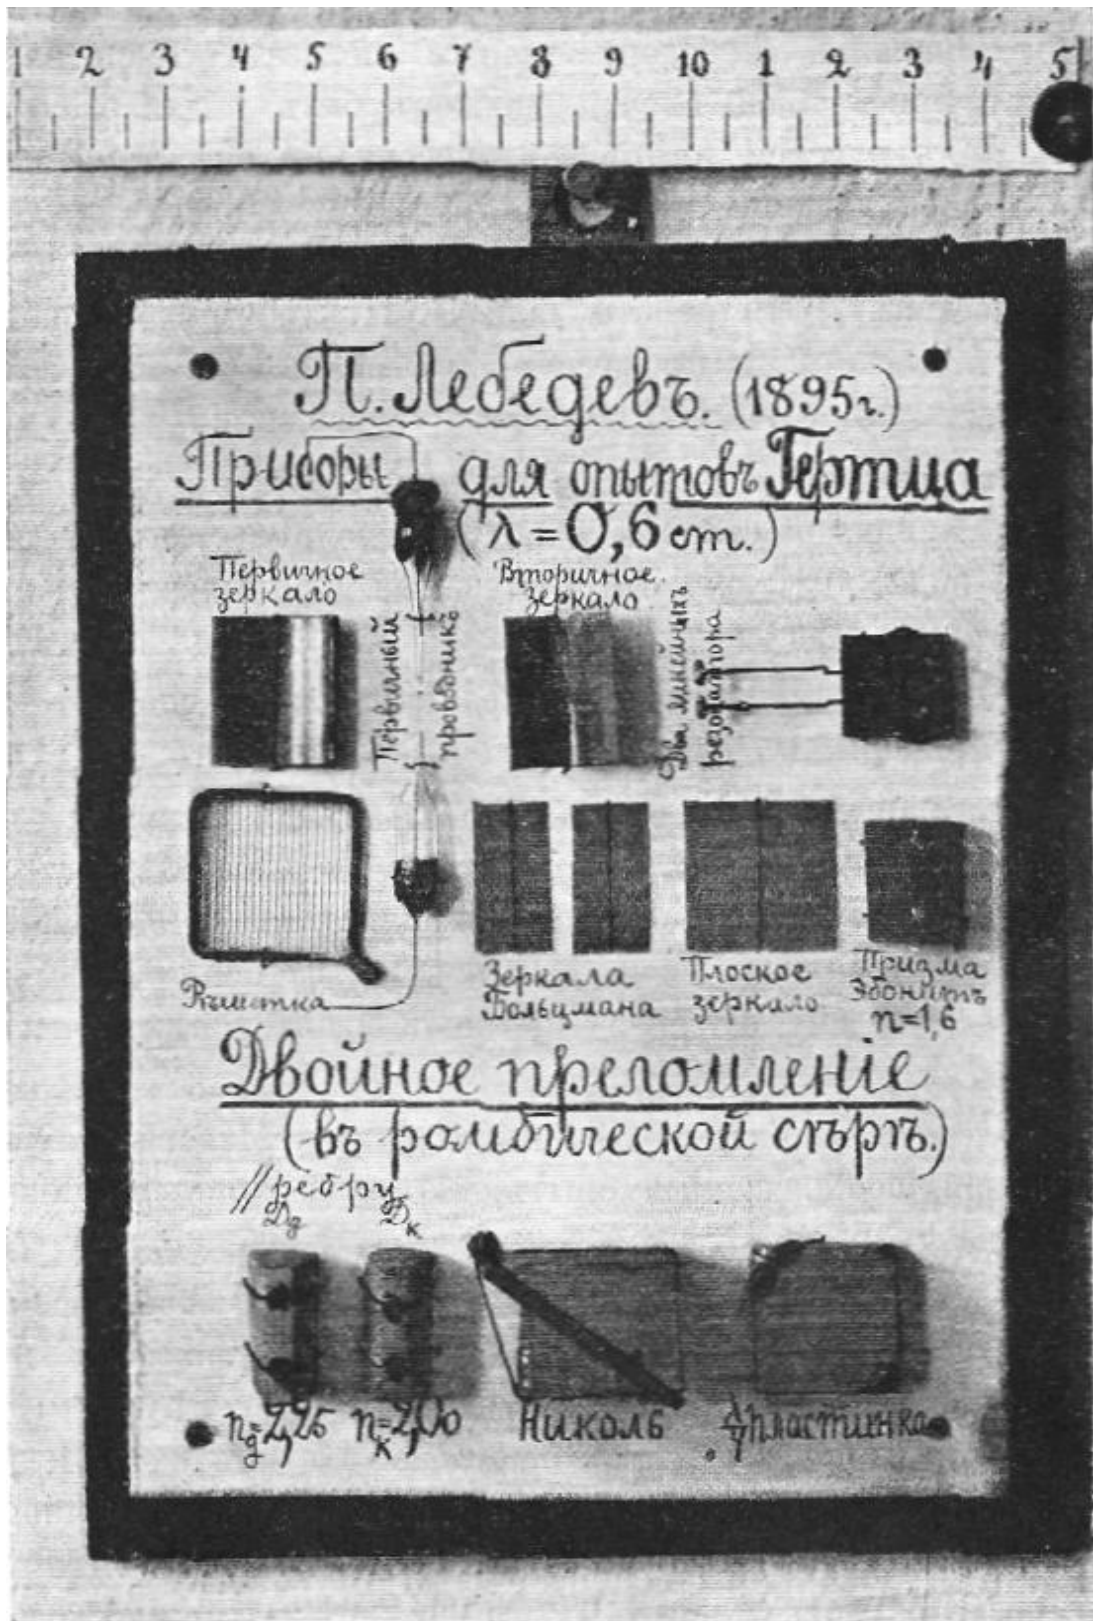 1 2 3 4 5 6 7 8 9 10 1 2 3 4 5
П. Лебедевъ. (1895г.)
Приборы для опытовъ Гертца
(λ = 0,6 cm.)
Первичное
зеркало
Первичный
проводникъ
Вторичное
зеркало
Два линейныхъ
резонатора
Рѣшетка
Зеркала
Больцмана
Плоское
зеркало
Призма
Эбонитъ
n=1,6
Двойное преломленіе
(въ ромбической сѣрѣ.)
// ребру
Dg Dк
ng=2,25 nк=2,00 Николь λ/4 пластинка